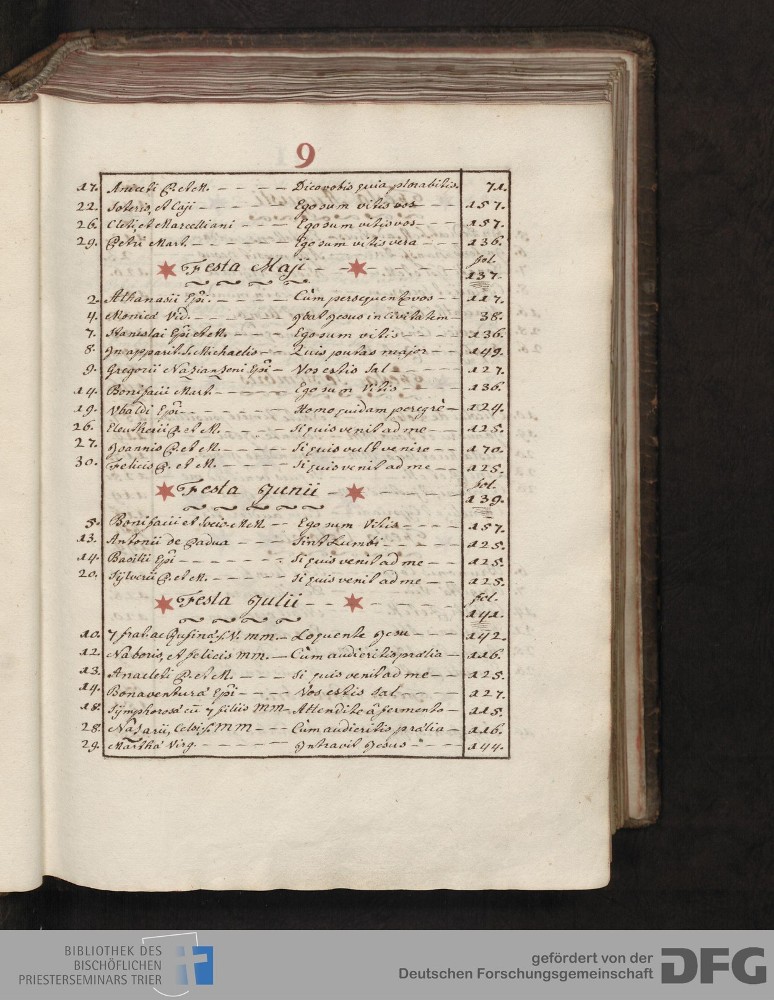 9
17. Aniceti P. et M. – – – – Dico vobis quia plorabitis. 71.
22. Soteris, et Caji – – – – Ego sum vitis vos – – – 157.
26. Cleti, et Marcelliani – – – Ego sum vitis vos – – – 157.
29. Petri Mart. – – – – – Ego sum vitis vera – – – 136.
Festa Maji – – – – – fol. 137.
2. Athanasii Epi. – – – – Cùm persequentr vos – – – 117.
4. Monicæ Vid. – – – – – Ibat Jesus in Civitatem – 38.
7. Stanislai Epi et M. – – – Ego sum vitis – – – 136.
8. In apparit. S. Michaelis – – Quis putas major – – – 149.
9. Gregorii Nazianzeni Epi – – Vos estis sal – – – – 127.
14. Bonifacii Mart. – – – – Ego sum Vitis – – – 136.
19. Vbaldi Epi – – – – – Homo quidam peregrè – 124.
26. Eleutherii P. et M. – – – – Si quis venit ad me – – 125.
27. Joannis P. et M. – – – – Si quis vult venire – – 170.
30. Felicis P. et M. – – – – Si quis venit ad me – – 125.
Festa Junii – – – – – fol. 139.
5. Bonifacii et Socio. MM. – – Ego sum Vitis – – – – 157.
13. Antonii de Padua – – – Sint Lumbi – – – – 125.
14. Basilii Epi – – – – – – Si quis venit ad me – – 125.
20. Sylverii P. et M. – – – – – Si quis venit ad me – – 125.
Festa Julii – – – – – fol. 141.
10. 7 frat. ac Rufinæ, S. V. mm. – Loquente Jesu – – – 142.
12. Naboris, et felicis mm. – Cùm audieritis prælia – 116.
13. Anacleti P. et M. – – – Si quis venit ad me – – 125.
14. Bonaventuræ Epi – – – – Vos estis sal – – – – 127.
18. Symphorosæ cū 7 filiis MM – Attendite â fermento – 115.
28. Nazarii, Celsi, S. MM – – – Cùm audieritis prælia – 116.
29. Marthæ Virg. – – – – – Intravit Jesus – – – 144.
BIBLIOTHEK DES
BISCHÖFLICHEN
PRIESTERSEMINARS TRIER
gefördert von der
Deutschen Forschungsgemeinschaft DFG